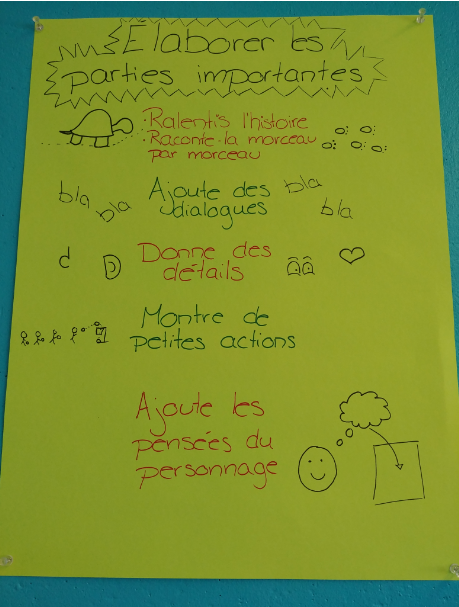 Élaborer les
parties importantes
Ralentis l'histoire
Raconte-la morceau
par morceau
bla bla Ajoute des bla
dialogues bla
Donne des
détails
Montre de
petites actions
Ajoute les
pensées du
personnage